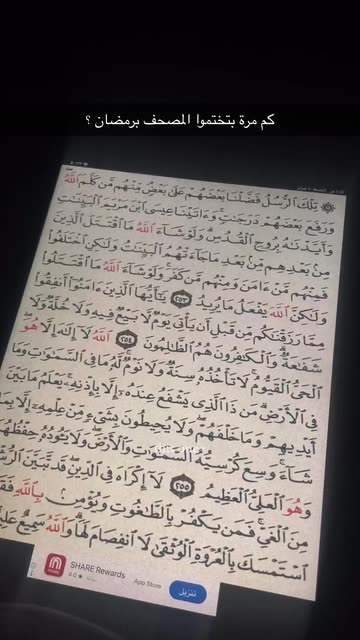 كم مرة بتختموا المصحف برمضان ؟
۞ تِلْكَ ٱلرُّسُلُ فَضَّلْنَا بَعْضَهُمْ عَلَىٰ بَعْضٍ مِّنْهُم مَّن كَلَّمَ ٱللَّهُ
وَرَفَعَ بَعْضَهُمْ دَرَجَٰتٍ وَءَاتَيْنَا عِيسَى ٱبْنَ مَرْيَمَ ٱلْبَيِّنَٰتِ
وَأَيَّدْنَٰهُ بِرُوحِ ٱلْقُدُسِ وَلَوْ شَآءَ ٱللَّهُ مَا ٱقْتَتَلَ ٱلَّذِينَ
مِنۢ بَعْدِهِم مِّنۢ بَعْدِ مَا جَآءَتْهُمُ ٱلْبَيِّنَٰتُ وَلَٰكِنِ ٱخْتَلَفُوا۟
فَمِنْهُم مَّنْ ءَامَنَ وَمِنْهُم مَّن كَفَرَ وَلَوْ شَآءَ ٱللَّهُ مَا ٱقْتَتَلُوا۟
وَلَٰكِنَّ ٱللَّهَ يَفْعَلُ مَا يُرِيدُ ٢٥٣ يَٰٓأَيُّهَا ٱلَّذِينَ ءَامَنُوٓا۟ أَنفِقُوا۟
مِمَّا رَزَقْنَٰكُم مِّن قَبْلِ أَن يَأْتِىَ يَوْمٌ لَّا بَيْعٌ فِيهِ وَلَا خُلَّةٌ وَلَا
شَفَٰعَةٌ وَٱلْكَٰفِرُونَ هُمُ ٱلظَّٰلِمُونَ ٢٥٤ ٱللَّهُ لَآ إِلَٰهَ إِلَّا هُوَ
ٱلْحَىُّ ٱلْقَيُّومُ لَا تَأْخُذُهُۥ سِنَةٌ وَلَا نَوْمٌ لَّهُۥ مَا فِى ٱلسَّمَٰوَٰتِ وَمَا
فِى ٱلْأَرْضِ مَن ذَا ٱلَّذِى يَشْفَعُ عِندَهُۥٓ إِلَّا بِإِذْنِهِۦ يَعْلَمُ مَا بَيْنَ
أَيْدِيهِمْ وَمَا خَلْفَهُمْ وَلَا يُحِيطُونَ بِشَىْءٍ مِّنْ عِلْمِهِۦٓ إِلَّا بِمَا
شَآءَ وَسِعَ كُرْسِيُّهُ ٱلسَّمَٰوَٰتِ وَٱلْأَرْضَ وَلَا يَـُٔودُهُۥ حِفْظُهُمَا
وَهُوَ ٱلْعَلِىُّ ٱلْعَظِيمُ ٢٥٥ لَآ إِكْرَاهَ فِى ٱلدِّينِ قَد تَّبَيَّنَ ٱلرُّشْ
مِنَ ٱلْغَىِّ فَمَن يَكْفُرْ بِٱلطَّٰغُوتِ وَيُؤْمِنۢ بِٱللَّهِ فَقَ
ٱسْتَمْسَكَ بِٱلْعُرْوَةِ ٱلْوُثْقَىٰ لَا ٱنفِصَامَ لَهَا وَٱللَّهُ سَمِيعٌ عَلِي
SHARE Rewards
4.0 ★
App Store
تنزيل